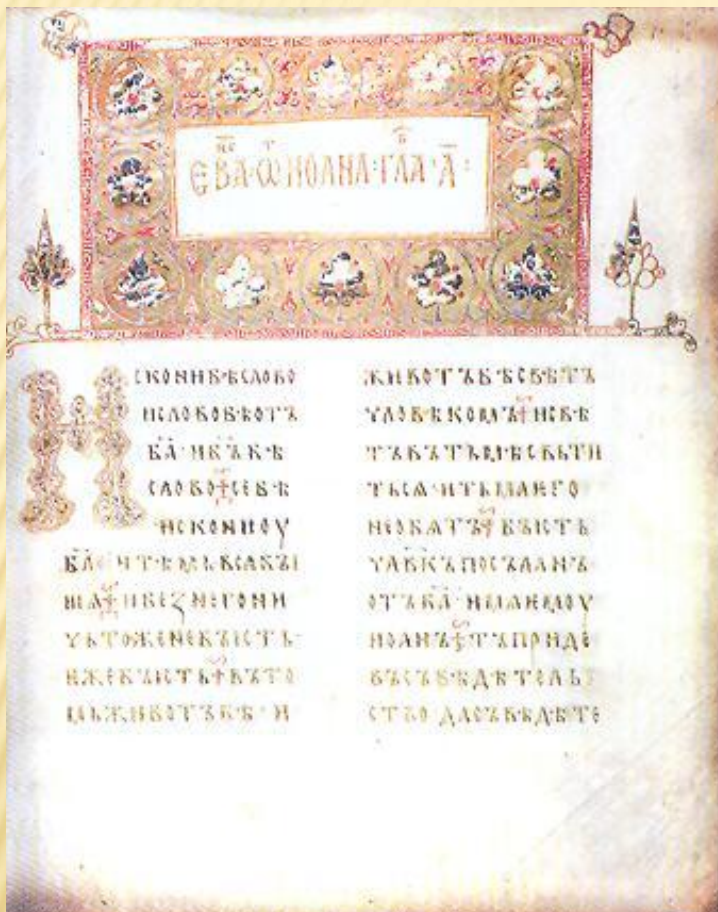 ЕВА҃·Ѿ ИОАНА·ГЛА·А҃:
ИСКОНИБѢСЛОВО
ИСЛОВОБѢОТЪ
Б҃А·ИБ҃ЪБѢ
СЛОВО·СЕБѢ
ИСКОНИОУ
Б҃А·ИТѢМЬВЬСАБЪІ
ШѦ·ИБЕЗНЕГОНИ
ЧЬТОЖЕНЕБЪІСТЬ·
ѤЖЕБЪІСТЬ·ВЪТО
МЬЖИВОТЪБѢ·И
ЖИВОТЪБѢСВѢТЪ
ЧЛОВѢКОМЪ·ИСВѢ
ТЪВЪТЬМѢСВЬТИ
ТЬСѦ·ИТЬМАѤГО
НЕОБѦТЪ·БЪІСТЬ
ЧЛ҃ВКЪПОСЪЛАНЪ·
ОТЪБ҃А·ИМѦѤМОУ
ИОАНЪ·ТЪПРИДЕ
ВЪСЪВѢДѢТЕЛЬ
СТВО·ДАСЪВѢДѢТЕ